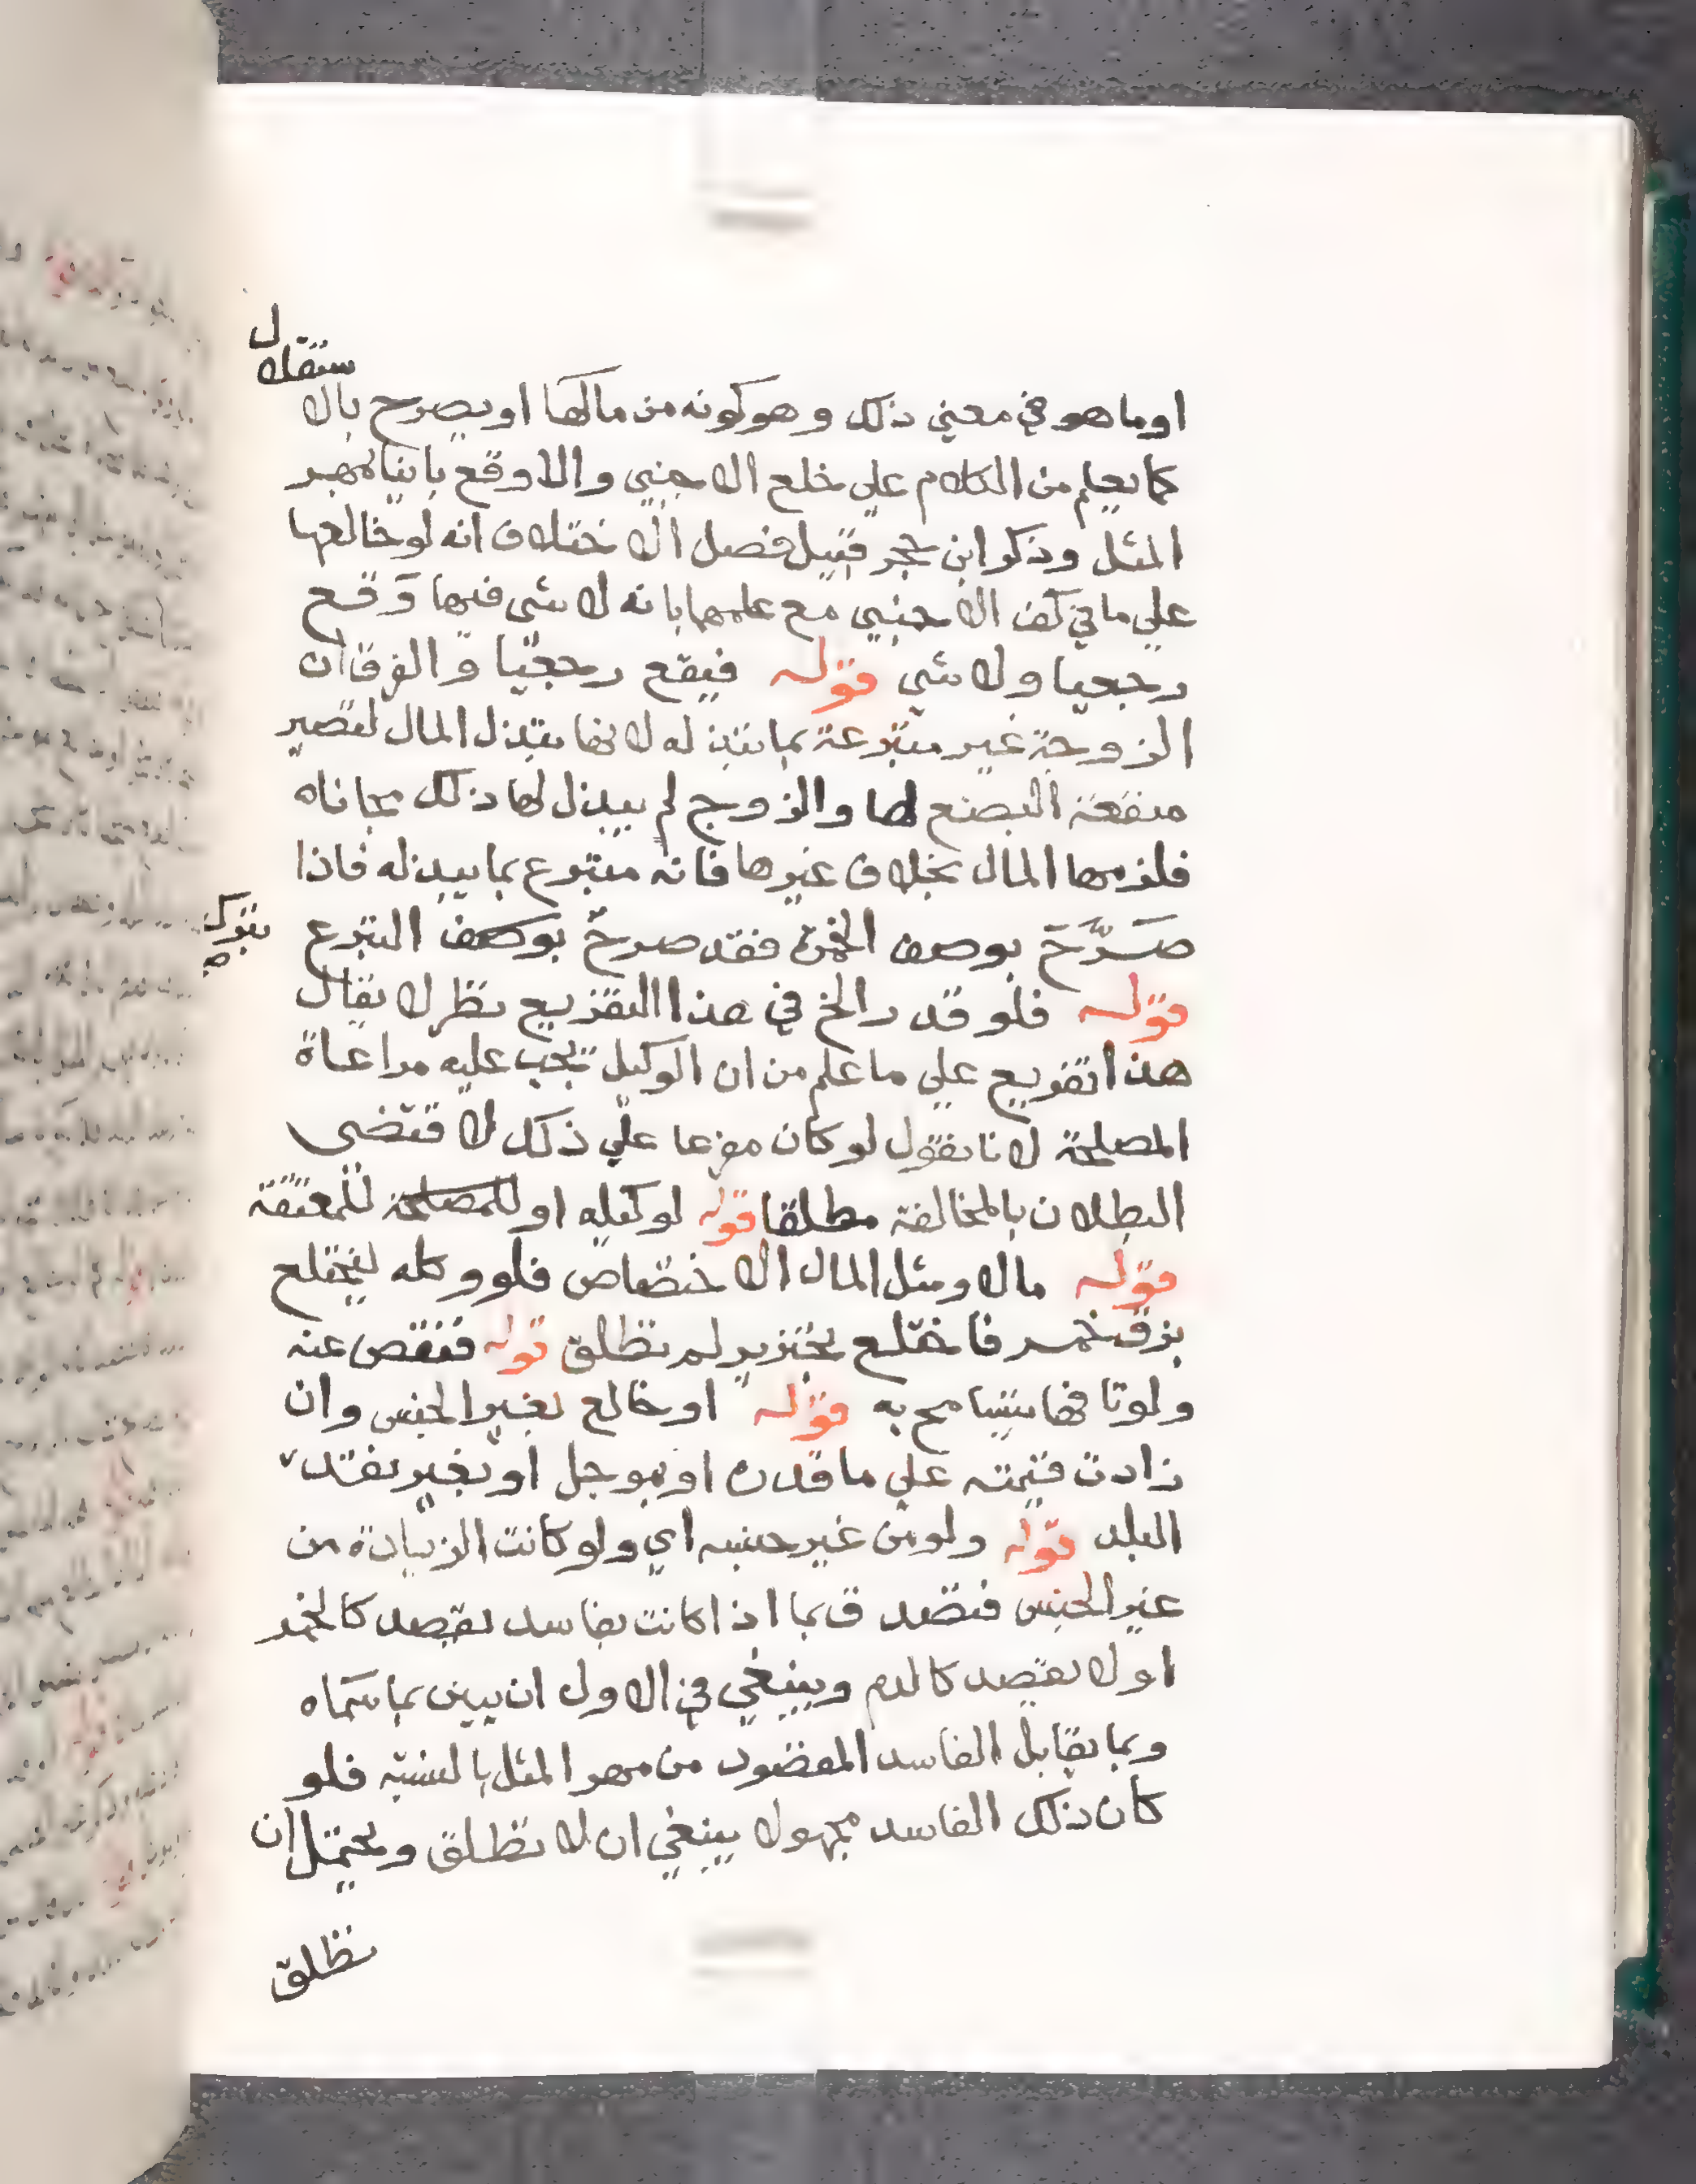 او ما هو في معني ذلك وهو كونه من مالها او يصرح بالا
ستقلال
كما يعلم من الكلام علي خلع الاجنبي والا وقع باينا بمهر
المثل وذكر ابن حجر قبيل فصل الاختلاف انه لو خالعها
علي ما في كف الاجنبي مع علمها بانه لا شي فيها وقع
رجعيا ولا شي قوله فيقع رجعيا والفرق ان
الزوجة غير متبرعة بما تبذله لانها تبذل المال لتصير
منفعة البضع لها والزوج لم يبذل لها ذلك مجانا
فلزمها المال بخلاف غيرها فانه متبرع بما يبذله فاذا
صَرَّحَ بوصف الخمرة فقد صرح بوصف التبرع
قوله فلو قدر الخ في هذا التفريع نظر لا يقال
هذا تفريع علي ما علم من ان الوكيل يجب عليه مراعاة
المصلحة لانا نقول لو كان مفرعا علي ذلك لاقتضى
البطلان بالمخالفة مطلقا قوله لوكيله او للمصلحة للمعتقة
قوله مالا ومثل المال الاختصاص فلو وكله ليختلع
بزق خمر فاختلع بخنزير لم تطلق قوله فنقص عنه
ولو تافها يتسامح به قوله او خالع بغير الجنس وان
زادت قيمته علي ما قدره او بموجل او بغير نقد
البلد قوله ولو من غير جنسه اي ولو كانت الزيادة من
غير الجنس فتصدق بما اذا كانت بفاسد يقصد كالخمر
او لا يقصد كالدم وينبغي في الاول ان يبين بما سماه
وبما يقابل الفاسد المقصود من مهر المثل بالنسبة فلو
كان ذلك الفاسد مجهولا ينبغي ان لا تطلق ويحتمل ان
تطلق